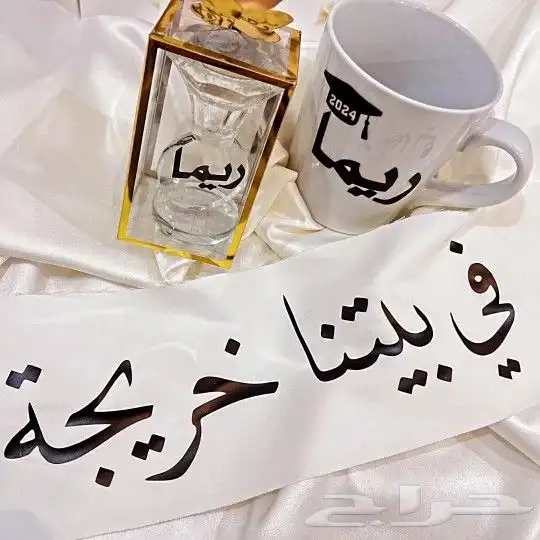 ريما
2024
ريما
في بيتنا خريجة
حراج